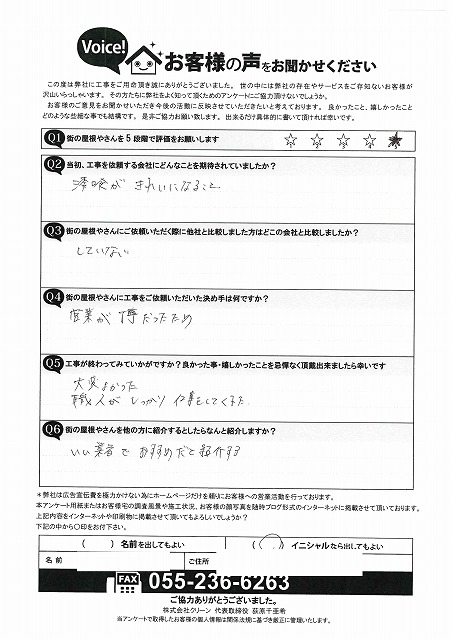 Voice!
お客様の声をお聞かせください
この度は弊社に工事をご用命頂き誠にありがとうございました。世の中には弊社の存在やサービスをご存知ないお客様が
沢山いらっしゃいます。その方たちに弊社をよく知って頂くためのアンケートにご協力頂けないでしょうか。
お客様のご意見をお聞かせいただき今後の活動に反映させていただきたいと考えております。良かったこと、嬉しかったこと
どのような些細な事でも結構です。是非ご協力お願い致します。出来るだけ具体的に書いて頂ければ幸いです。
Q1 街の屋根やさんを5段階で評価をお願いします ☆ ☆ ☆ ☆ ★
Q2 当初、工事を依頼する会社にどんなことを期待されていましたか?
漆喰が きれいになること
Q3 街の屋根やさんにご依頼いただく際に他社と比較しました方はどこの会社と比較しましたか?
していない
Q4 街の屋根やさんに工事をご依頼いただいた決め手は何ですか?
営業が 丁寧だったため
Q5 工事が終わってみていかがですか?良かった事・嬉しかったことを忌憚なく頂戴出来ましたら幸いです
大変よかった
職人が しっかり 仕事をしてくれた
Q6 街の屋根やさんを他の方に紹介するとしたらなんと紹介しますか?
いい業者で おすすめだと紹介する
*弊社は広告宣伝費を極力かけない為にホームページだけを頼りにお客様への営業活動を行っております。
本アンケート用紙またはお客様宅の調査風景や施工状況、お客様の顔写真を随時ブログ形式のインターネットに掲載させて頂いております。
上記内容をインターネットや印刷物に掲載させて頂いてもよろしいでしょうか?
下記の中から○印をお付下さい。
( ) 名前を出してもよい (○) イニシャルなら出してもよい
名前 ご住所
FAX 055-236-6263
ご協力ありがとうございました。
株式会社クリーン 代表取締役 荻原千亜希
※アンケートで取得したお客様の個人情報は関係法規に基づき厳正に管理いたします。